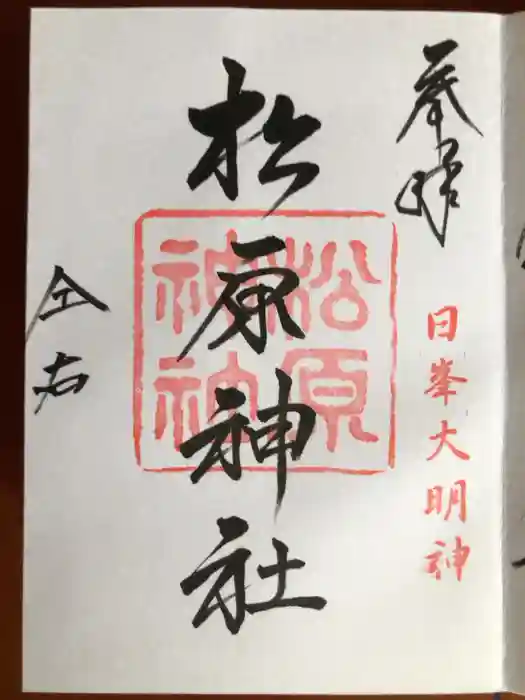 奉拝
日峯大明神
松原神社
松原
神社
仝右